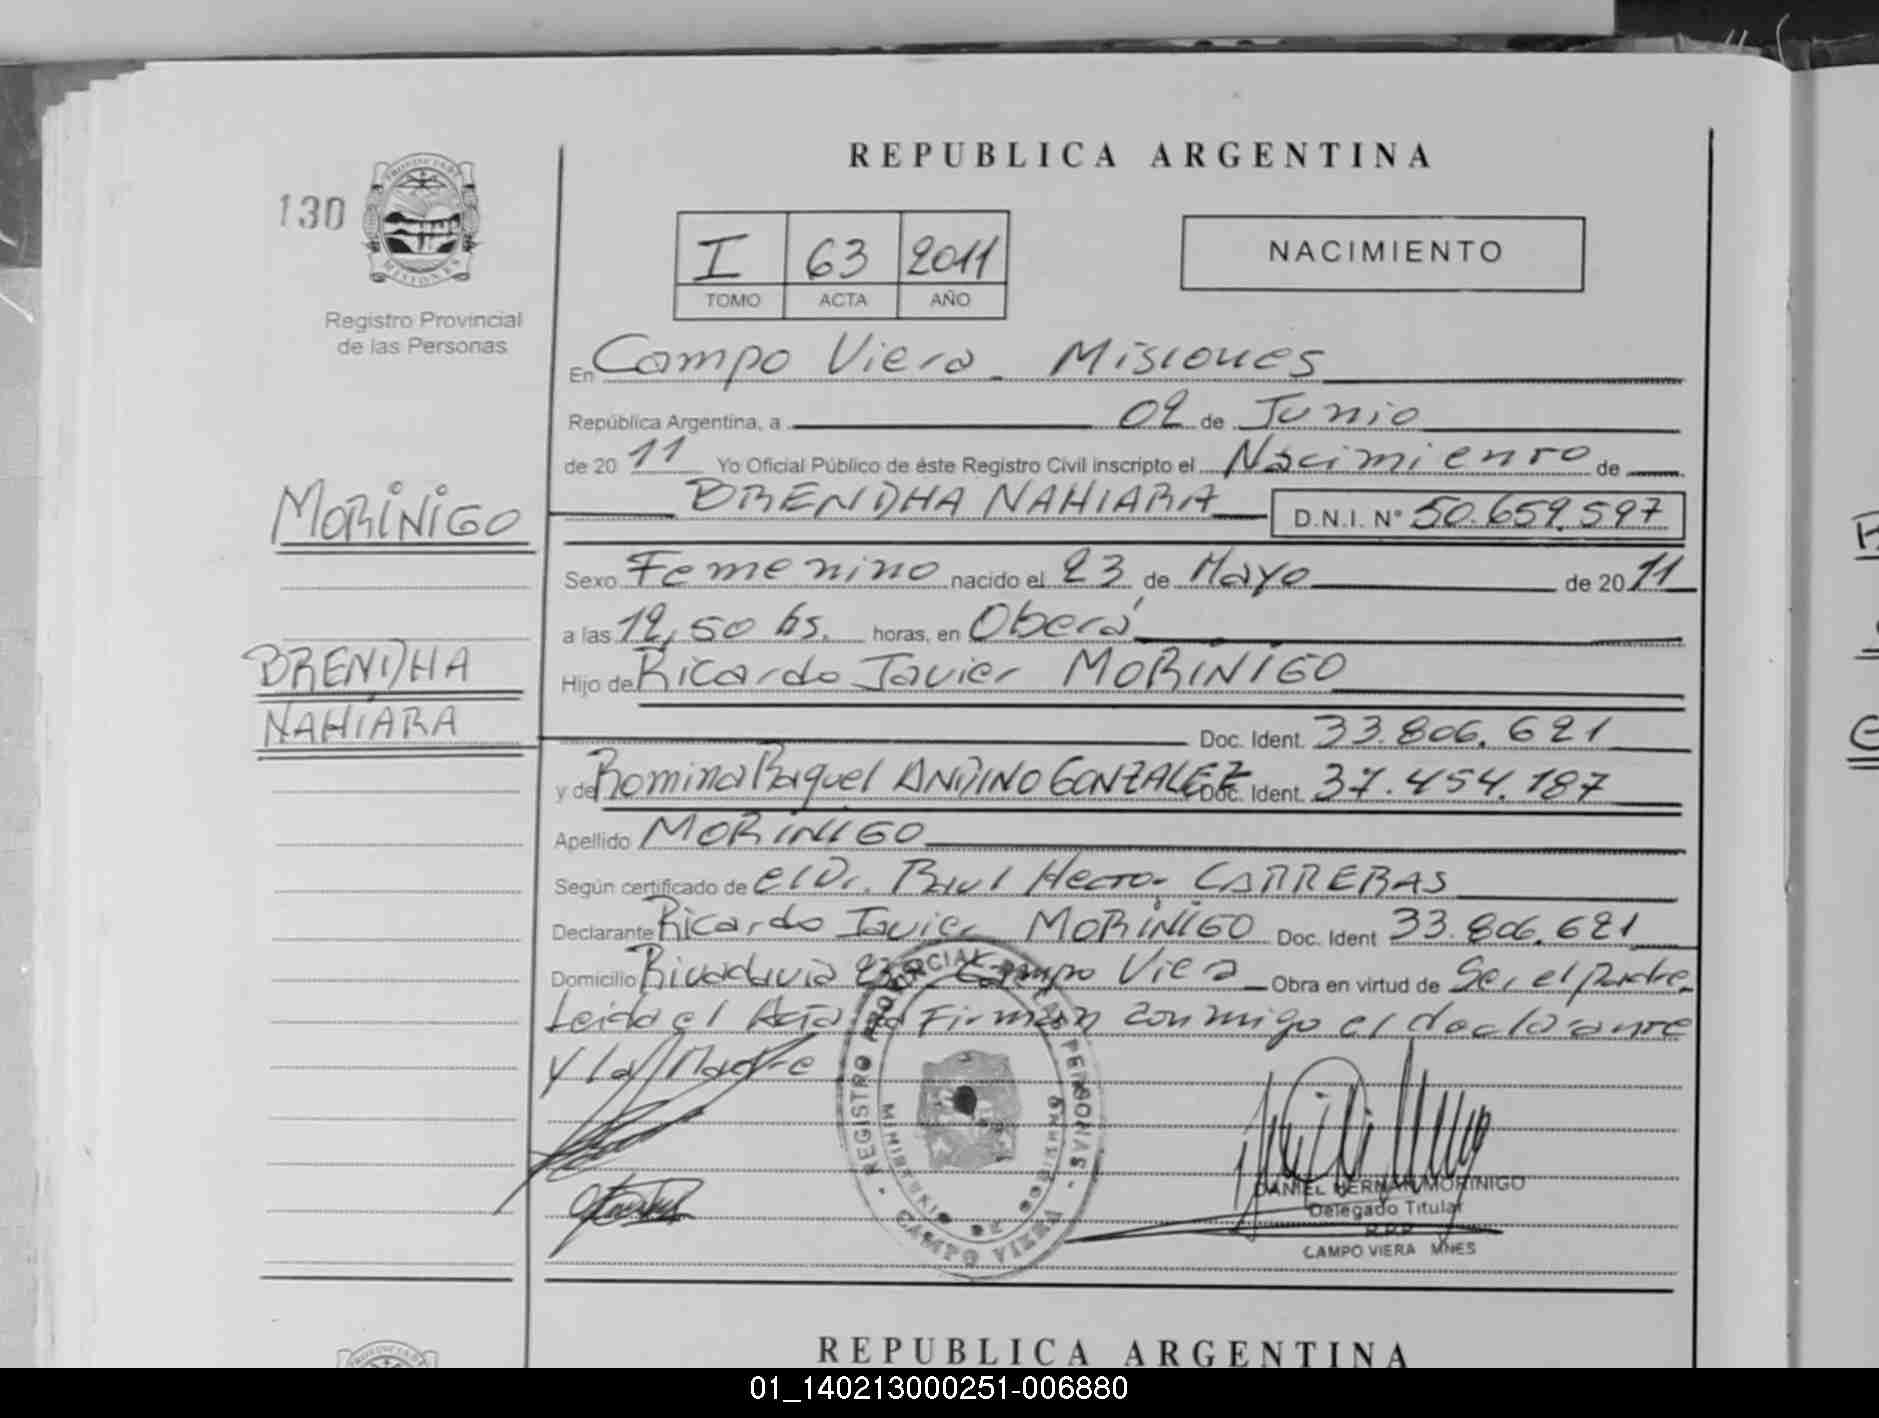 REPUBLICA ARGENTINA
130
PROVINCIA DE
MISIONES
Registro Provincial
de las Personas
I 63 2011
TOMO ACTA AÑO
NACIMIENTO
En Campo Viera - Misiones
República Argentina, a 02 de Junio
de 2011 Yo Oficial Público de éste Registro Civil inscripto el Nacimiento de
BRENDHA NAHIARA D.N.I. N° 50.659.597
MORINIGO
Sexo Femenino nacido el 23 de Mayo de 2011
a las 12,50 hs. horas, en Oberá
BRENDHA
NAHIARA
Hijo de Ricardo Javier MORINIGO
Doc. Ident. 33.806.621
y de Romina Raquel ANDINO GONZALEZ Doc. Ident. 37.454.187
Apellido MORINIGO
Según certificado de el Dr. Raul Hector CARRERAS
Declarante Ricardo Javier MORINIGO Doc. Ident 33.806.621
Domicilio Rivadavia Campo Viera Obra en virtud de Ser el padre.
Leida el Acta la Firman conmigo el declarante
y la Madre
REGISTRO PROVINCIAL DE LAS PERSONAS
MINISTERIO DE
CAMPO VIERA
DANIEL HERNAN MORINIGO
Delegado Titular
R.P.P.
CAMPO VIERA MNES
REPUBLICA ARGENTINA
01_140213000251-006880